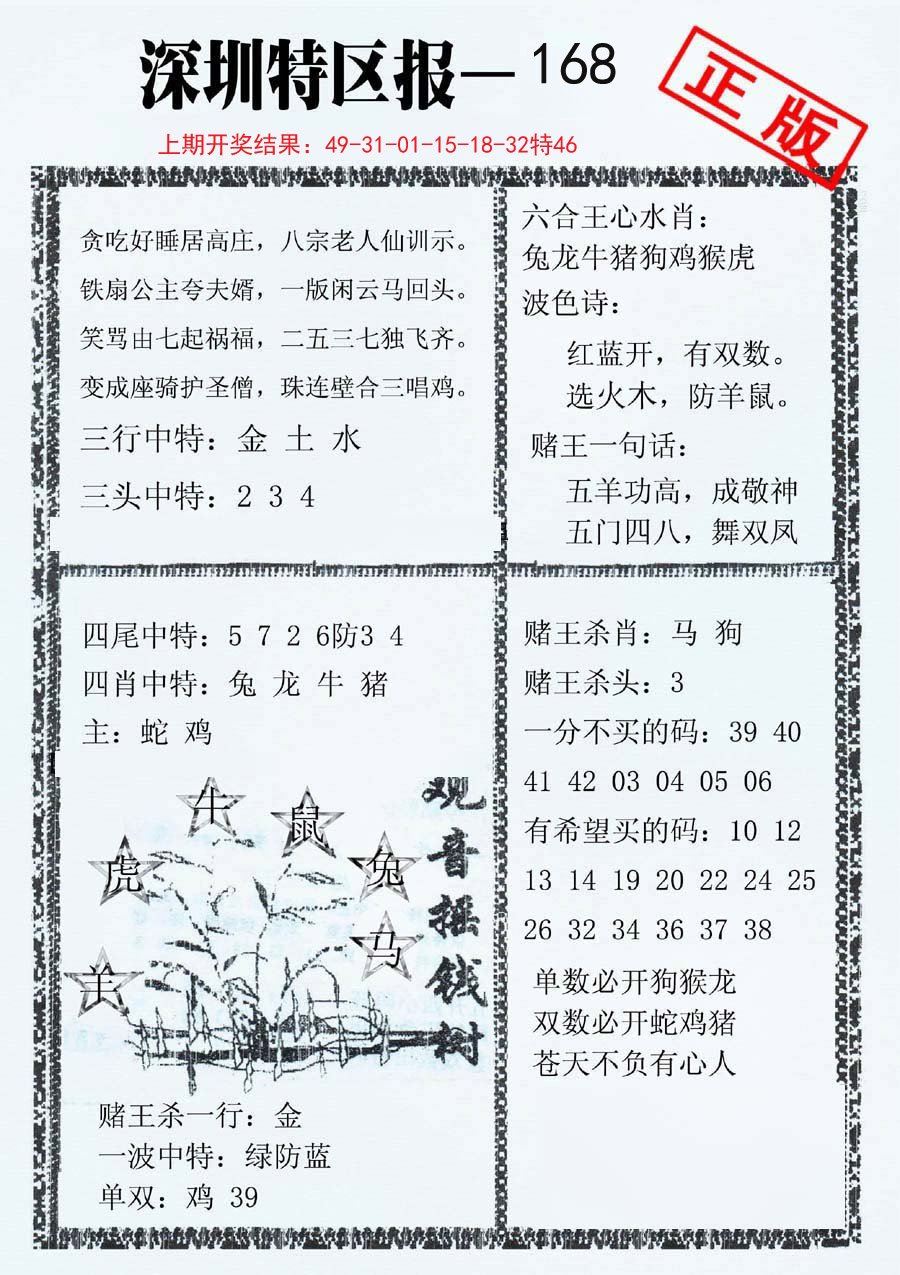 深圳特区报—168
正版
上期开奖结果：49-31-01-15-18-32特46
贪吃好睡居高庄，八宗老人仙训示。
铁扇公主夸夫婿，一版闲云马回头。
笑骂由七起祸福，二五三七独飞齐。
变成座骑护圣僧，珠连壁合三唱鸡。
三行中特：金 土 水
三头中特：2 3 4
六合王心水肖：
兔龙牛猪狗鸡猴虎
波色诗：
红蓝开，有双数。
选火木，防羊鼠。
赌王一句话：
五羊功高，成敬神
五门四八，舞双凤
四尾中特：5 7 2 6防3 4
四肖中特：兔 龙 牛 猪
主：蛇 鸡
牛
鼠
虎
兔
马
羊
观音摇钱树
赌王杀一行：金
一波中特：绿防蓝
单双：鸡 39
赌王杀肖：马 狗
赌王杀头：3
一分不买的码：39 40
41 42 03 04 05 06
有希望买的码：10 12
13 14 19 20 22 24 25
26 32 34 36 37 38
单数必开狗猴龙
双数必开蛇鸡猪
苍天不负有心人